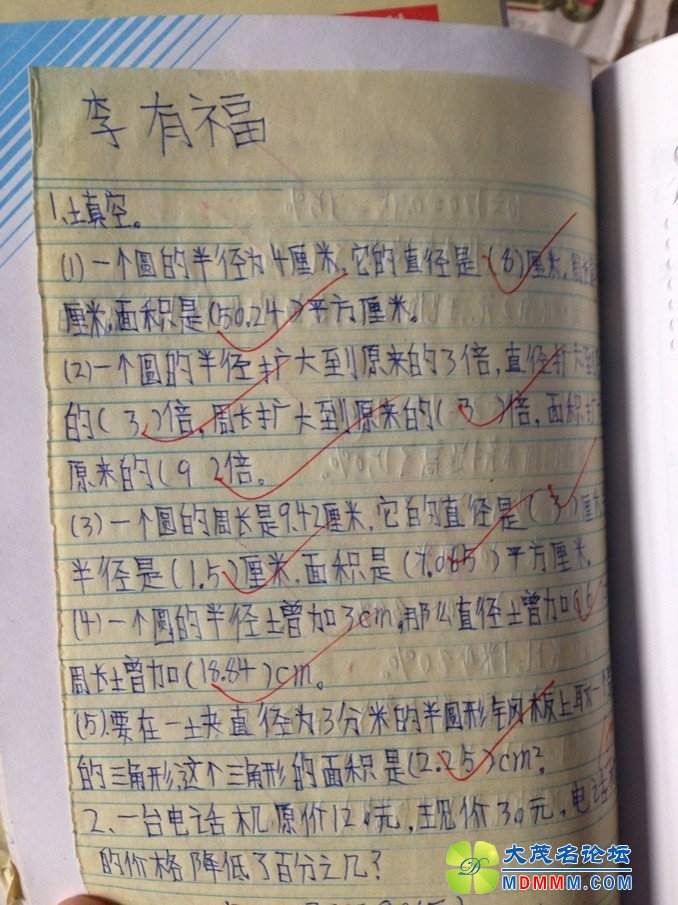 李有福
1.填空。
(1)一个圆的半径为4厘米,它的直径是(8)厘米,周长
厘米,面积是(50.24)平方厘米。
(2)一个圆的半径扩大到原来的3倍,直径扩大到
的(3)倍,周长扩大到原来的(3)倍,面积扩
原来的(9)倍。
(3)一个圆的周长是9.42厘米,它的直径是(3)厘米
半径是(1.5)厘米,面积是(7.065)平方厘米。
(4)一个圆的半径增加3cm,那么直径增加(6)
周长增加(18.84)cm。
(5).要在一块直径为3分米的半圆形钢板上取一个
的三角形,这个三角形的面积是(2.25)cm²。
2、一台电话机原价120元,现价30元,电话
的价格降低了百分之几?
大茂名论坛
MDMMM.com